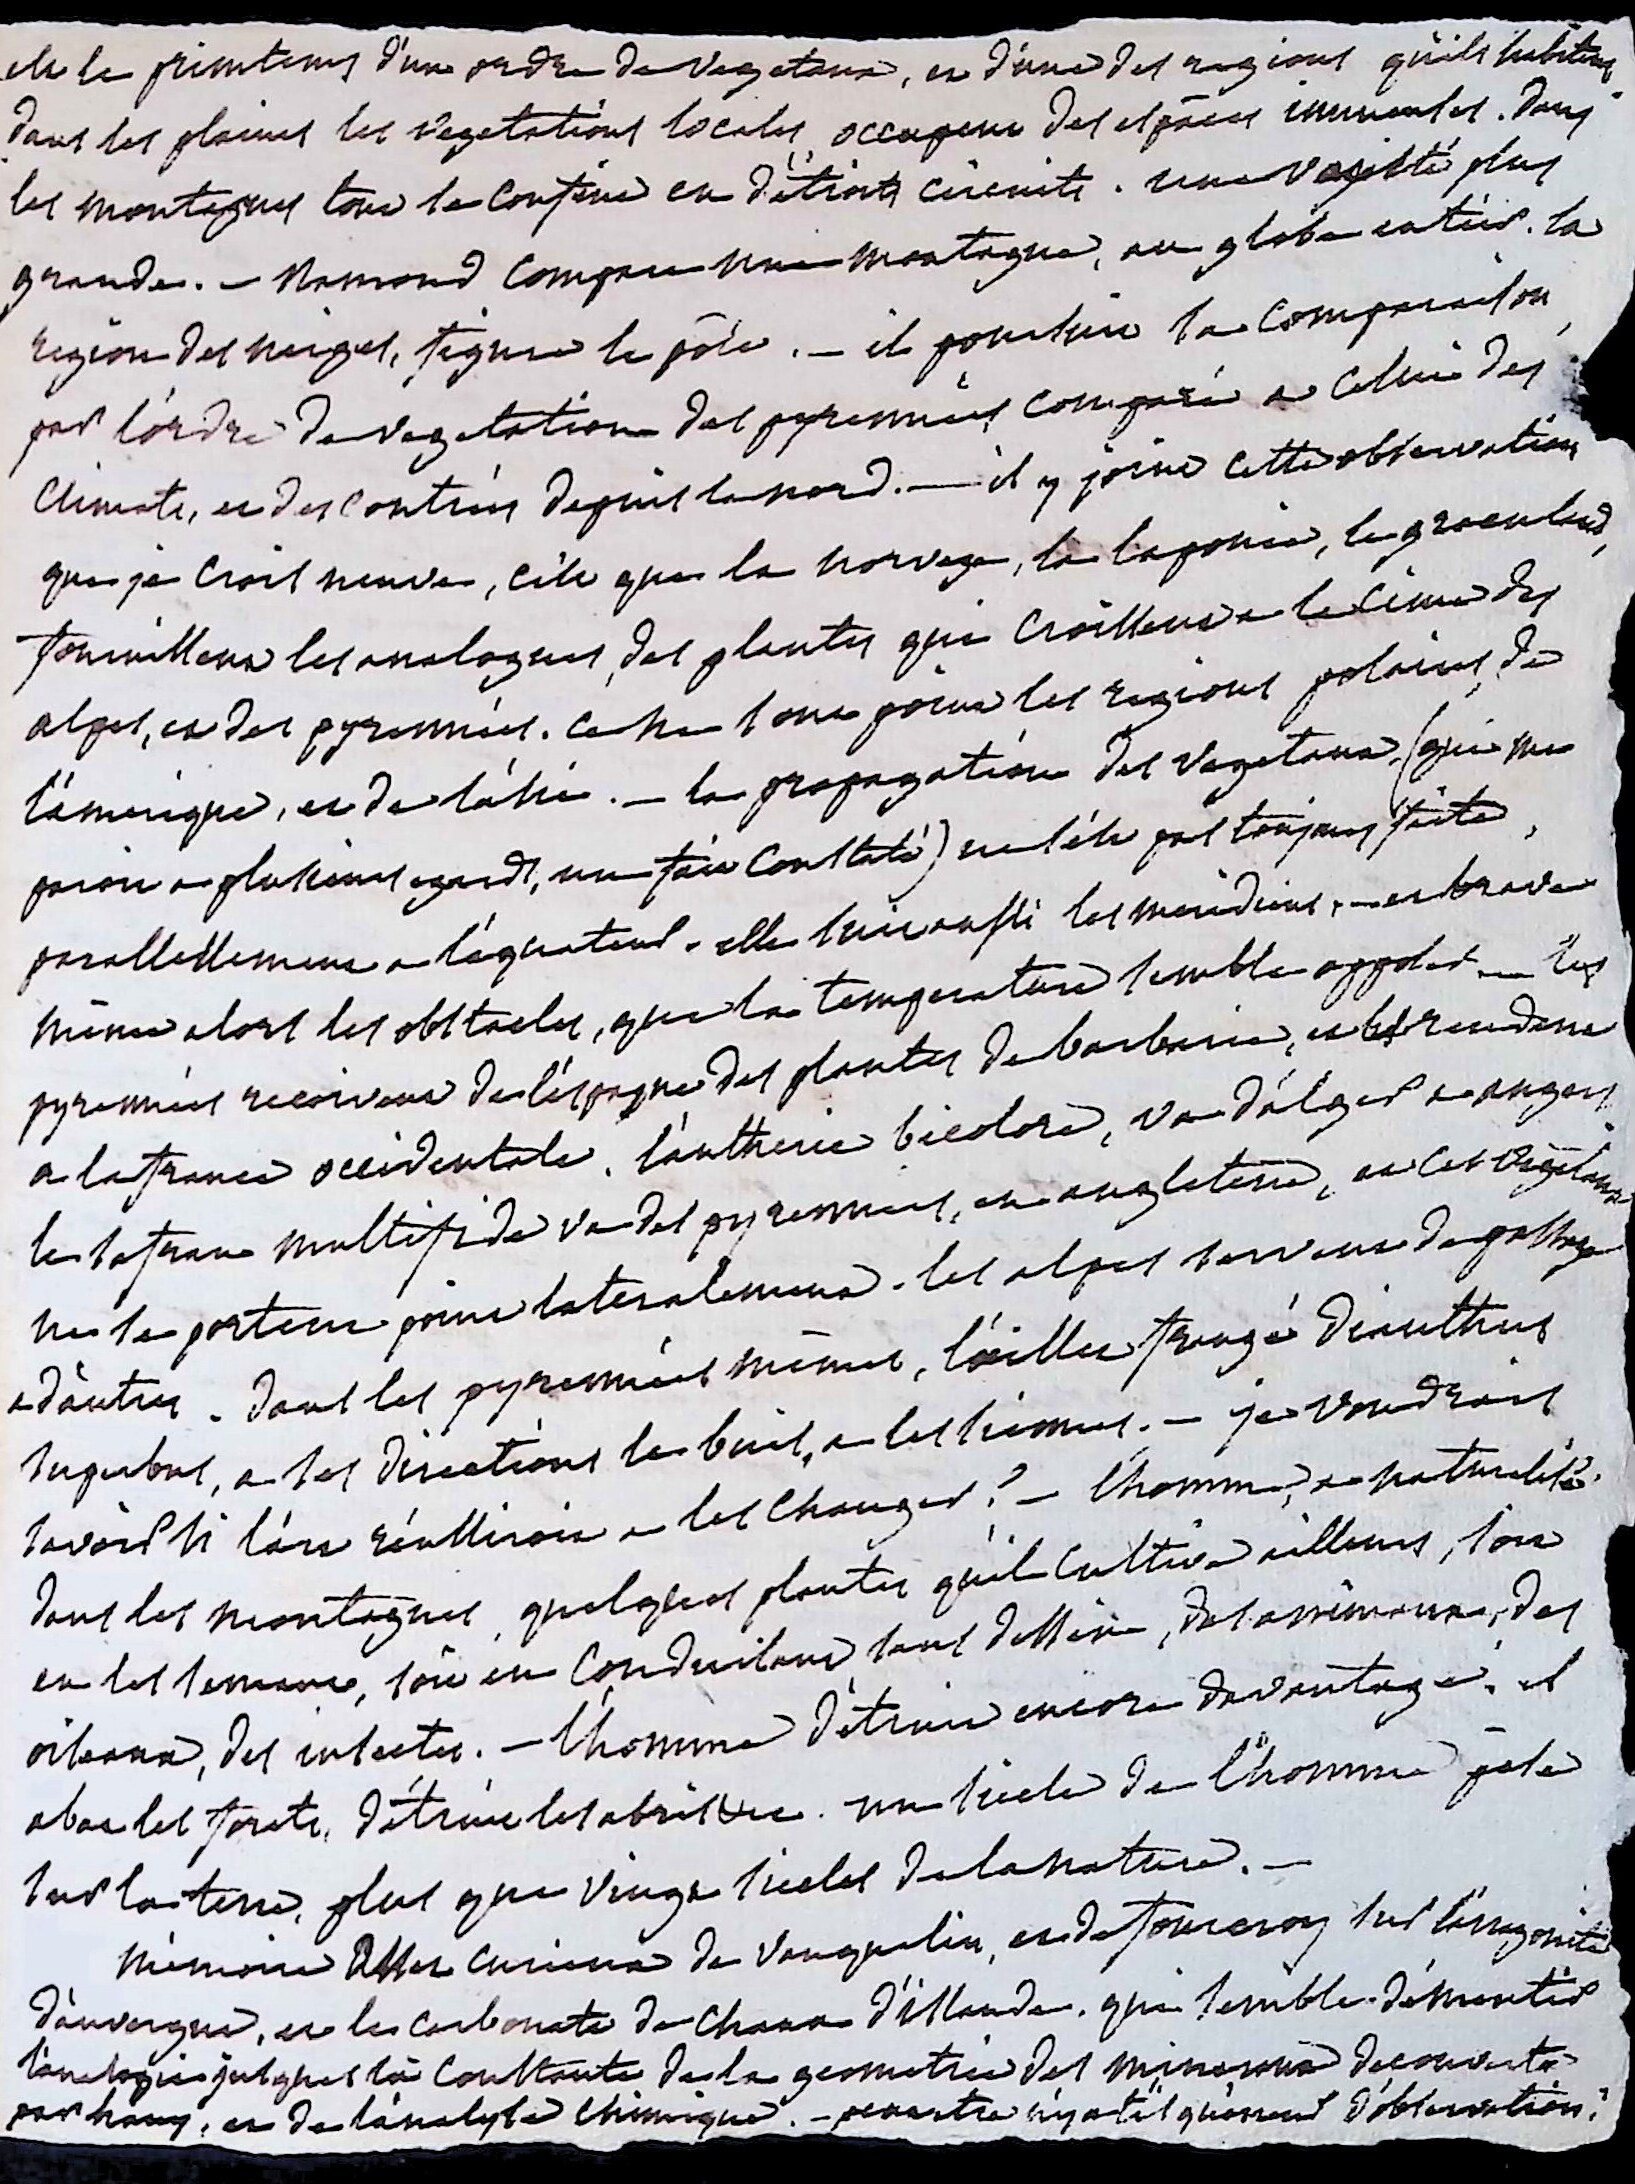 est le printems d'un ordre de vegetaux, et d'une des regions qu'ils habitent
dans les plaines les vegetations locales occupent des espaces immenses. dans
les montagnes tout se confine en d'étroits circuits. une variété plus
grande. – Ramond compare une montagne, au globe entier. la
region des neiges, figure le pôle. – il poursuit la comparaison
par l'ordre de vegetation des pyrennées comparé a celui des
climats, et des contrées depuis le nord. – il y joint cette observation
que je crois neuve, c'est que la norvege, la laponie, le groenland,
fournissent les analogues, des plantes qui croissent a la cime des
alpes, et des pyrennées. ce ne sont point les regions polaires, de
l'amerique, et de l'asie. – la propagation des vegetaux (qui me
paroit a plusieurs egards, un fait constaté) ne s'est pas toujours faite,
parallellement a l'équateur. elle suit aussi les meridiens, – et brave
même alors les obstacles, que la temperature semble opposer. – les
pyrennées recoivent de l'espagne des plantes de barbarie, et les rendent
a la france occidentale. l'antheric bicolore, va d'alger a angers
le safran multifide va des pyrennées, en angleterre, et ces vegetaux
ne se portent point lateralement. les alpes servent de passage
a d'autres. dans les pyrennées mêmes, l'oeillet frangé dianthus
superbus, a ses directions le buis, a les siennes. – je voudrois
savoir si l'on réussiroit a les changer? – l'homme, a naturalisé
dans les montagnes, quelques plantes qu'il cultive ailleurs, soit
en les semant, soit en conduisant, sans dessein, des animaux, des
oiseaux, des insectes. – l'homme détruit encore davantage. il
abat les forets, détruit les abris &c. un siecle de l'homme pese
sur la terre, plus que vingt siecles de la nature. –
mémoire assez curieux de vauquelin, et de fourcroy sur l'arragonite
d'auvergne, et le carbonate de chaux d'islande. qui semble démentir
l'analogie jusques là constante de la geometrie des mineraux decouverte
par hauy, et de l'analyse chimique. – peut etre n'y a t'il qu'erreur d'observation.